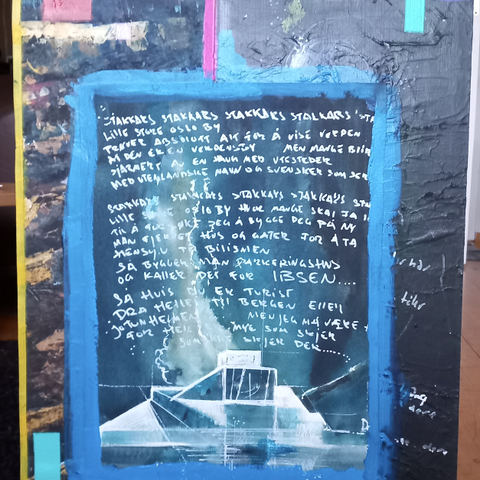 STAKKARS STAKKARS STAKKARS STAKKARS STA
LILLE STORE OSLO BY
PRØVER ABSOLUTT ALT FOR Å VISE VERDEN
DEN ER EN VERDENSBY MEN MANGE BLIR
SJARMERT AV EN HAVN MED UTESTEDER
MED UTENLANDSKE NAVN OG SVENSKER SOM
STAKKARS STAKKARS STAKKARS STAKKARS STA
LILLE OSLO BY HVOR MANGE SKAL JA
TIL Å JEG Å BYGGE DEG PÅ NY
MAN HUS OG GATER FOR Å TA
HENSYN TIL BILISMEN
SÅ BYGGER MAN PARKERINGSHUS
OG KALLER DET FOR IBSEN....
SÅ HVIS DU ER TURIST
DRA HELLER TIL BERGEN ELLER
JOTUNHEIMEN MEN JEG MÅ VÆRE
FOR MYE SOM SKJER
SOM IKKE SKJER DER......